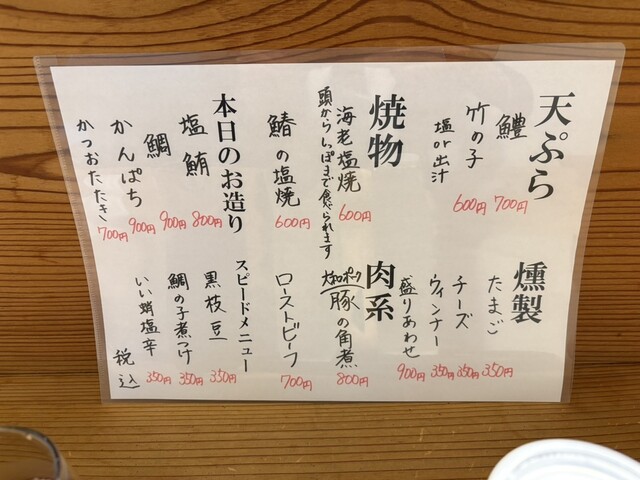 天ぷら
鱧
700円
竹の子
塩or出汁
600円
焼物
海老塩焼
頭からしっぽまで食べられます
600円
鰆の塩焼
600円
本日のお造り
塩鮪
800円
鯛
900円
かんぱち
900円
かつおたたき
700円
燻製
たまご
350円
チーズ
350円
ウィンナー
350円
盛りあわせ
900円
肉系
豚の角煮
800円
ローストビーフ
700円
スピードメニュー
黒枝豆
350円
鯛の子煮つけ
350円
いい蛸塩辛
350円
税込